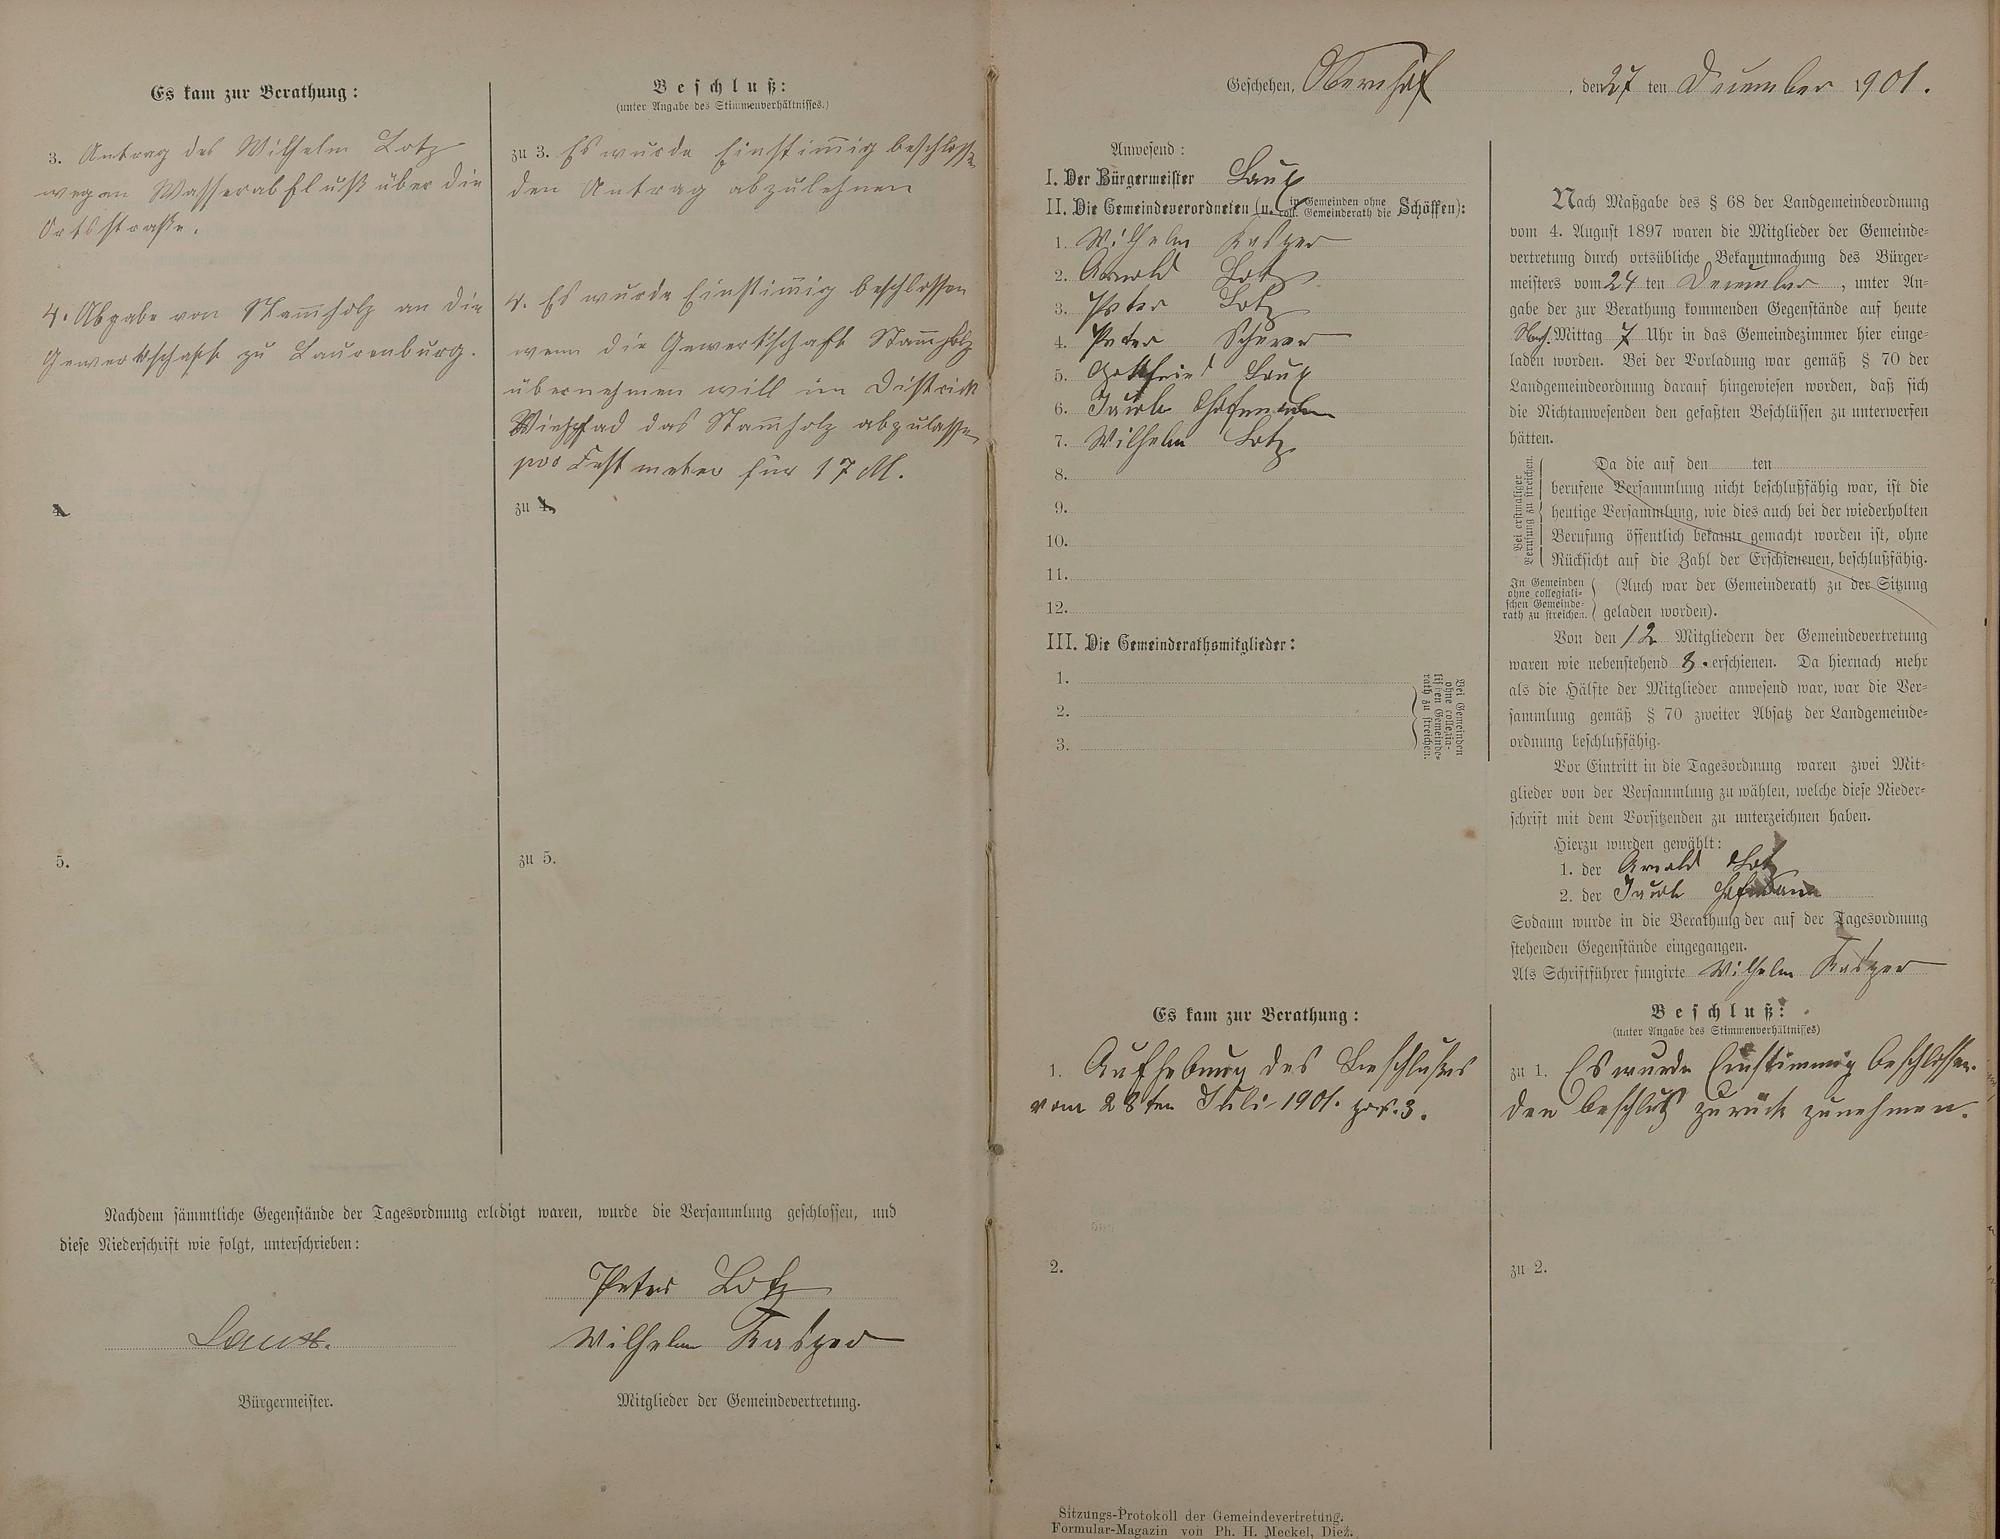 Es kam zur Berathung:
3. Antrag des Wilhelm Lotz
wegen Wasserabfluß über die
Ortsstraße.
4. Abgabe von Stam̅holz an die
Gewerkschaft zu Laurenburg.
4.
5.
Beschluß:
(unter Angabe des Stimmenverhältnisses.)
zu 3. Es wurde Einstim̅ig beschlossen
den Antrag abzulehnen
4. Es wurde Einstim̅ig beschlossen
wenn die Gewerkschaft Stam̅holz
übernehmen will im District
Viehpfad das Stam̅holz abzulassen
pro Festmeter für 17 M.
zu 4.
zu 5.
Nachdem sämmtliche Gegenstände der Tagesordnung erledigt waren, wurde die Versammlung geschlossen, und
diese Niederschrift wie folgt, unterschrieben:
Peter Lotz
Laux.
Wilhelm Kasper
Bürgermeister.
Mitglieder der Gemeindevertretung.
Geschehen, Obernhof, den 27 ten December 1901.
Anwesend:
I. Der Bürgermeister Laux
II. Die Gemeindeverordneten (u. in Gemeinden ohne coll. Gemeinderath die Schöffen):
1. Wilhelm Kasper
2. Arnold Lotz
3. Peter Lotz
4. Peter Scherer
5. Gottfried Laux
6. Jacob Hofmann
7. Wilhelm Lotz
8.
9.
10.
11.
12.
III. Die Gemeinderathsmitglieder:
1.
2.
3.
Bei Gemeinden
ohne collegia-
lischen Gemeinde-
rath zu streichen.
Nach Maßgabe des § 68 der Landgemeindeordnung
vom 4. August 1897 waren die Mitglieder der Gemeinde-
vertretung durch ortsübliche Bekanntmachung des Bürger-
meisters vom 24 ten December, unter An-
gabe der zur Berathung kommenden Gegenstände auf heute
Nach. Mittag 7 Uhr in das Gemeindezimmer hier einge-
laden worden. Bei der Vorladung war gemäß § 70 der
Landgemeindeordnung darauf hingewiesen worden, daß sich
die Nichtanwesenden den gefaßten Beschlüssen zu unterwerfen
hätten.
Bei erstmaliger
Berufung zu streichen.
Da die auf den ten
berufene Versammlung nicht beschlußfähig war, ist die
heutige Versammlung, wie dies auch bei der wiederholten
Berufung öffentlich bekannt gemacht worden ist, ohne
Rücksicht auf die Zahl der Erschienenen, beschlußfähig.
In Gemeinden
ohne collegiali-
schen Gemeinde-
rath zu streichen.
(Auch war der Gemeinderath zu der Sitzung
geladen worden).
Von den 12 Mitgliedern der Gemeindevertretung
waren wie nebenstehend 8. erschienen. Da hiernach mehr
als die Hälfte der Mitglieder anwesend war, war die Ver-
sammlung gemäß § 70 zweiter Absatz der Landgemeinde-
ordnung beschlußfähig.
Vor Eintritt in die Tagesordnung waren zwei Mit-
glieder von der Versammlung zu wählen, welche diese Nieder-
schrift mit dem Vorsitzenden zu unterzeichnen haben.
Hierzu wurden gewählt:
1. der Arnold Lotz
2. der Jacob Hofmann
Sodann wurde in die Berathung der auf der Tagesordnung
stehenden Gegenstände eingegangen.
Als Schriftführer fungirte Wilhelm Kasper
Es kam zur Berathung:
1. Aufhebung des Beschlußes
vom 28ten Juli 1901. pos. 3.
2.
Beschluß:
(unter Angabe des Stimmenverhältnisses)
zu 1. Es wurde Einstimmig beschlossen.
den beschluß zurück zunehmen.
zu 2.
Sitzungs-Protokoll der Gemeindevertretung.
Formular-Magazin von Ph. H. Meckel, Diez.